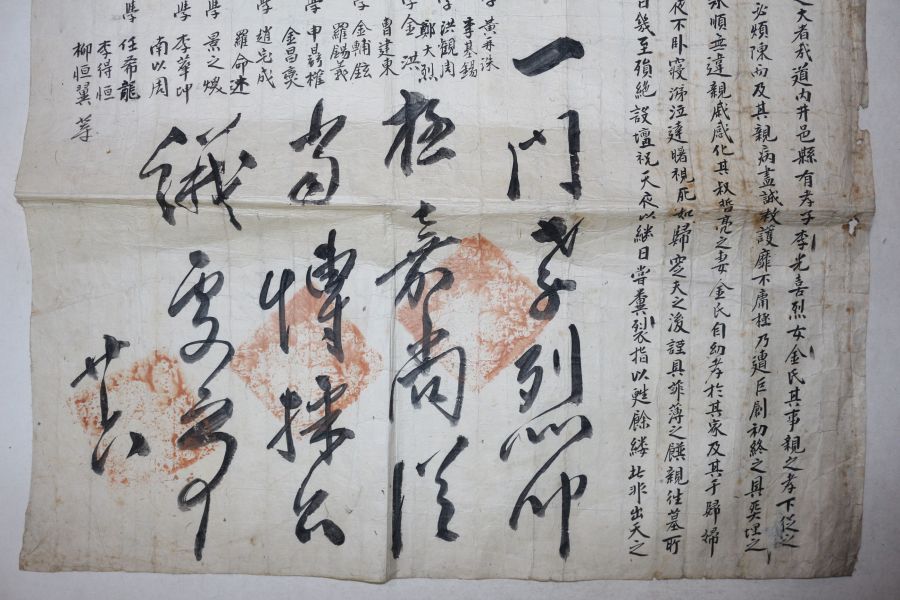 之大者哉道內井邑縣有孝子李光喜烈女金氏其事親之孝下從之
必煩陳而及其親病盡誠救護靡不庸極乃遭巨創初終之具奠埋之
承順無違親戚感化其叔哲亮之妻金氏自幼孝於其家及其于歸婦
夜不卧寢涕泣達曙視死如歸窆天之後謹具菲薄之饌親往墓所
日幾至殞絶設壇祝天夜以継日嘗糞裂指以甦餘縷此非出天之
一門孝列
極嘉尚從
當博採公
議
學 黃 洙
李基錫
學 洪觀周
鄭大烈
學 金 洪
曹建東
學 金輔鉉
羅錫義
學 申 權
金昌奭
學 趙完成
羅命述
學 景之煥
學 李華坤
南以周
學 任希龍
李得恒
柳恒翼 等